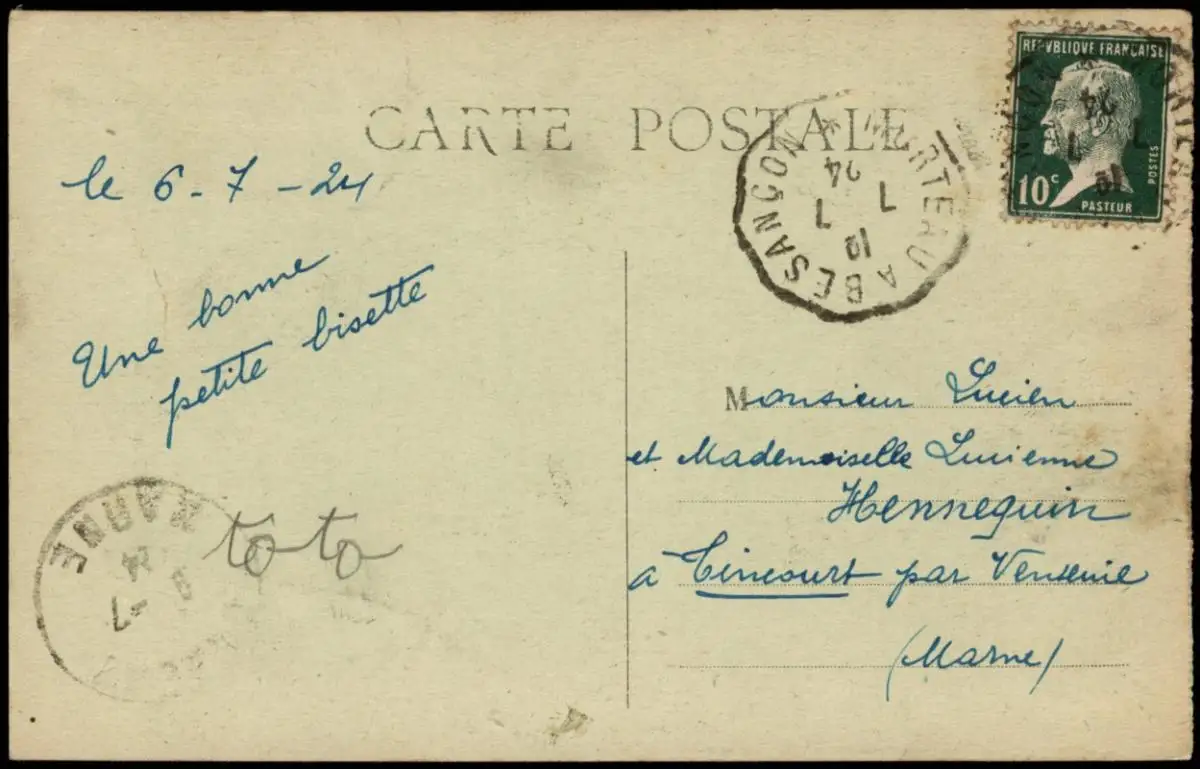 CARTE POSTALE
REPUBLIQUE FRANÇAISE
10c
POSTES
PASTEUR
MORTEAU A BESANÇON
12
7 7
24
le 6-7-24
Une bonne
petite bisette
toto
MARNE
7
24
Monsieur Lucien
et Mademoiselle Lucienne
Hennequin
a Tincourt par Venteuil
(Marne)